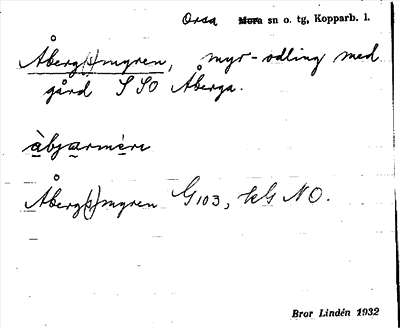 Orsa Mora sn o. tg, Kopparb. l.
Åberg(s)myren, myr-odling med
gård SSO Åberga.
àbjarmèrę
Åberg(s)myren G103, kG NO.
Bror Lindén 1932